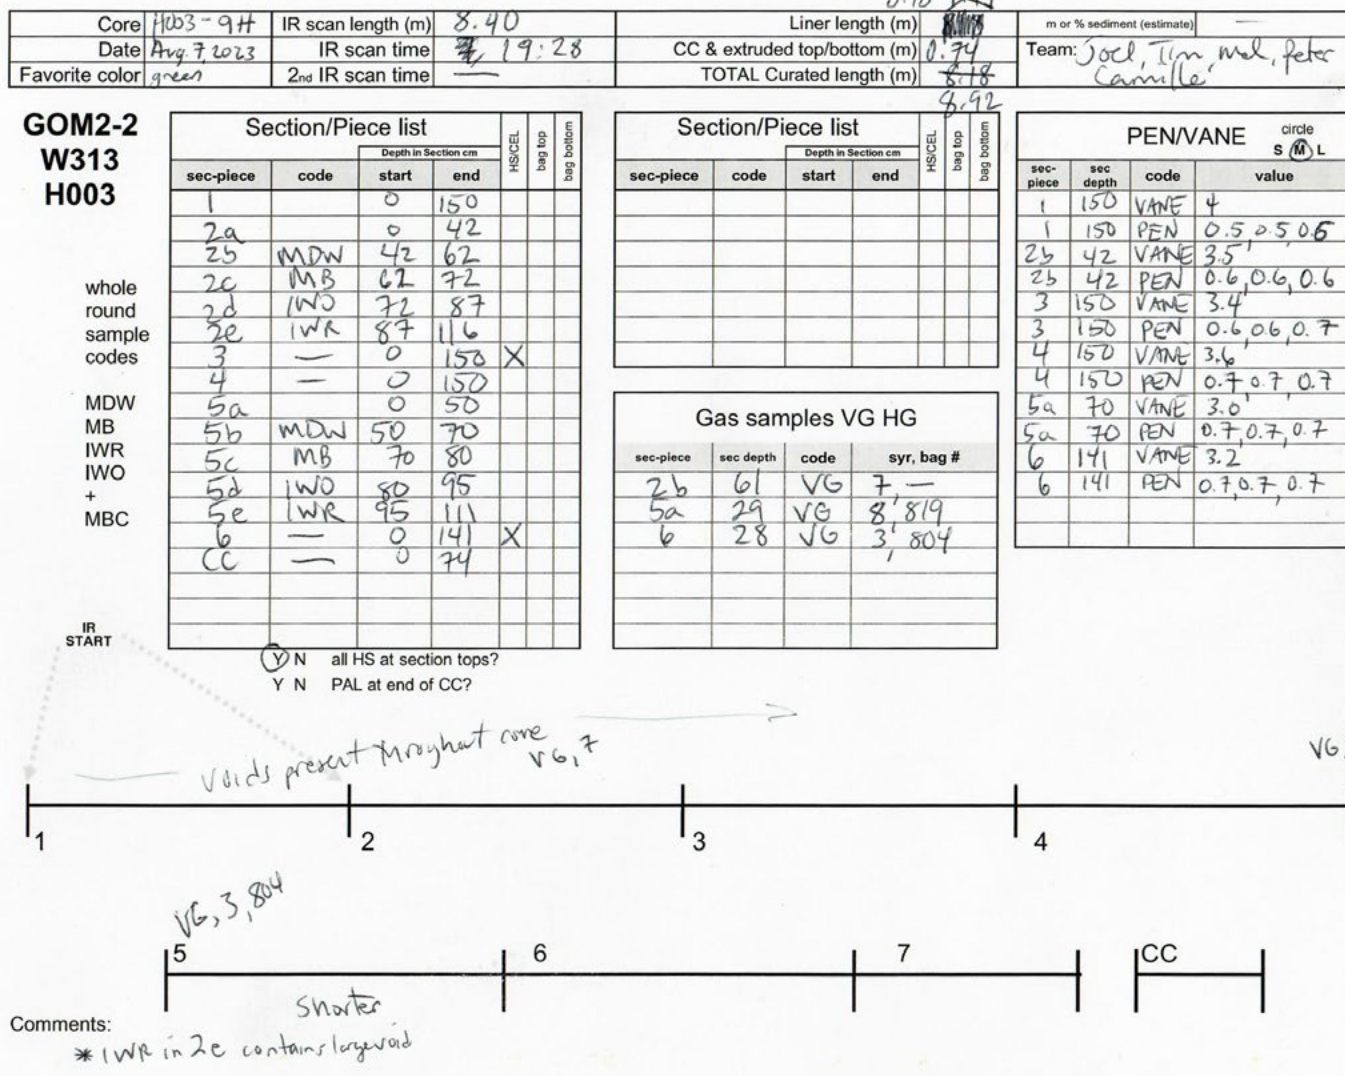 Core H003-9H IR scan length (m) 8.40 Liner length (m) m or % sediment (estimate) —
Date Aug. 7, 2023 IR scan time 19:28 CC & extruded top/bottom (m) 0.74 Team: Joel, Tim, Mel, Peter
Camille
Favorite color green 2nd IR scan time — TOTAL Curated length (m) 8.18
8.92
GOM2-2
W313
H003
whole
round
sample
codes
MDW
MB
IWR
IWO
+
MBC
Section/Piece list
Depth in Section cm
sec-piece code start end HS/CEL bag top bag bottom
1 0 150
2a 0 42
2b MDW 42 62
2c MB 62 72
2d IWO 72 87
2e IWR 87 116
3 — 0 150 X
4 — 0 150
5a 0 50
5b MDW 50 70
5c MB 70 80
5d IWO 80 95
5e IWR 95 111
6 — 0 141 X
CC — 0 74
Y N all HS at section tops?
Y N PAL at end of CC?
Section/Piece list
Depth in Section cm
sec-piece code start end HS/CEL bag top bag bottom
Gas samples VG HG
sec-piece sec depth code syr, bag #
2b 61 VG 7, —
5a 29 VG 8, 819
6 28 VG 3, 804
PEN/VANE circle
S M L
sec-piece sec depth code value
1 150 VANE 4
1 150 PEN 0.5, 0.5 0.6
2b 42 VANE 3.5
2b 42 PEN 0.6, 0.6, 0.6
3 150 VANE 3.4
3 150 PEN 0.6, 0.6, 0.7
4 150 VANE 3.6
4 150 PEN 0.7, 0.7, 0.7
5a 70 VANE 3.0
5a 70 PEN 0.7, 0.7, 0.7
6 141 VANE 3.2
6 141 PEN 0.7, 0.7, 0.7
IR
START
Voids present throughout core
VG, 7
VG,
1 2 3 4
VG, 3, 804
5 6 7 CC
Shorter
Comments:
* IWR in 2e contains large void